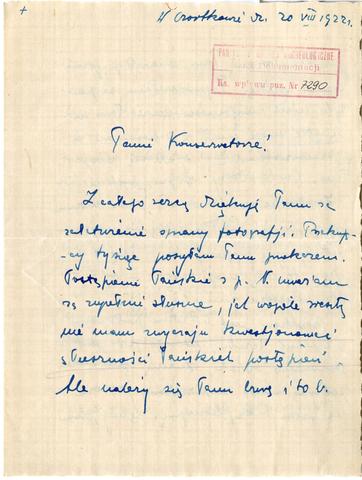 +
W Czortkowie d. 20 VIII 1922r.
PAŃ ARCHEOLOGICZNE
Ks. wpływu poz. Nr 7290
Panie Konserwatorze!
Z całego serca dziękuję Panu za
załatwienie sprawy fotografji. Trzech
tysiące posyłam Panu przekazem.
Postąpienie Pańskie z p. N. uważam
za zupełnie słuszne, jak wogóle zresztą
nie mam zwyczaju kwestjonować
słuszności Pańskich postąpień.
Ale należy się Panu burę i to b.